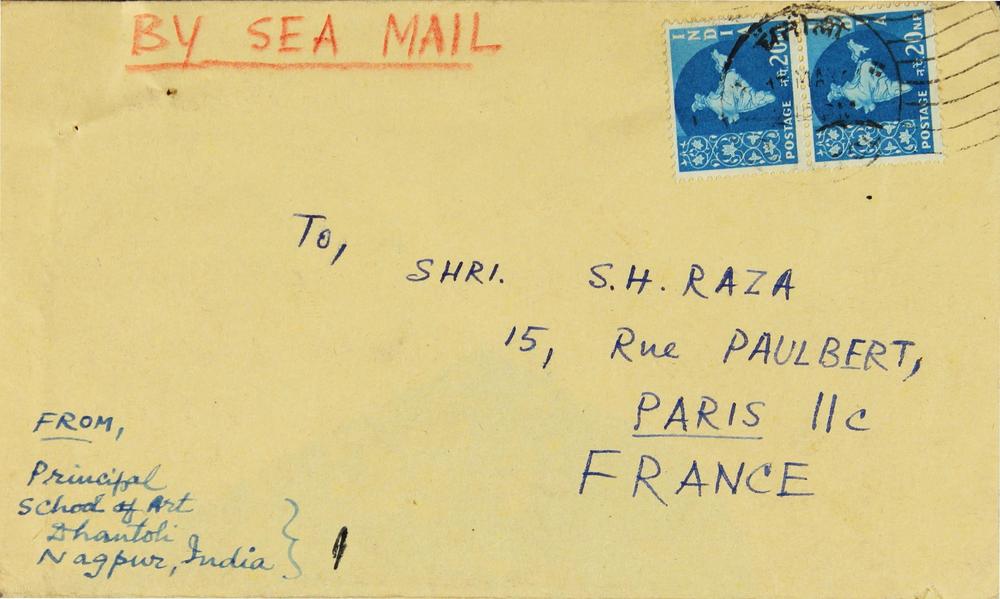 BY SEA MAIL
INDIA
20 न.पै.
POSTAGE
INDIA
20 NP.
न.पै.
POSTAGE
To,
SHRI. S.H. RAZA
15, Rue PAULBERT,
PARIS 11c
FRANCE
FROM,
Principal
School of Art
Dhantoli
Nagpur, India